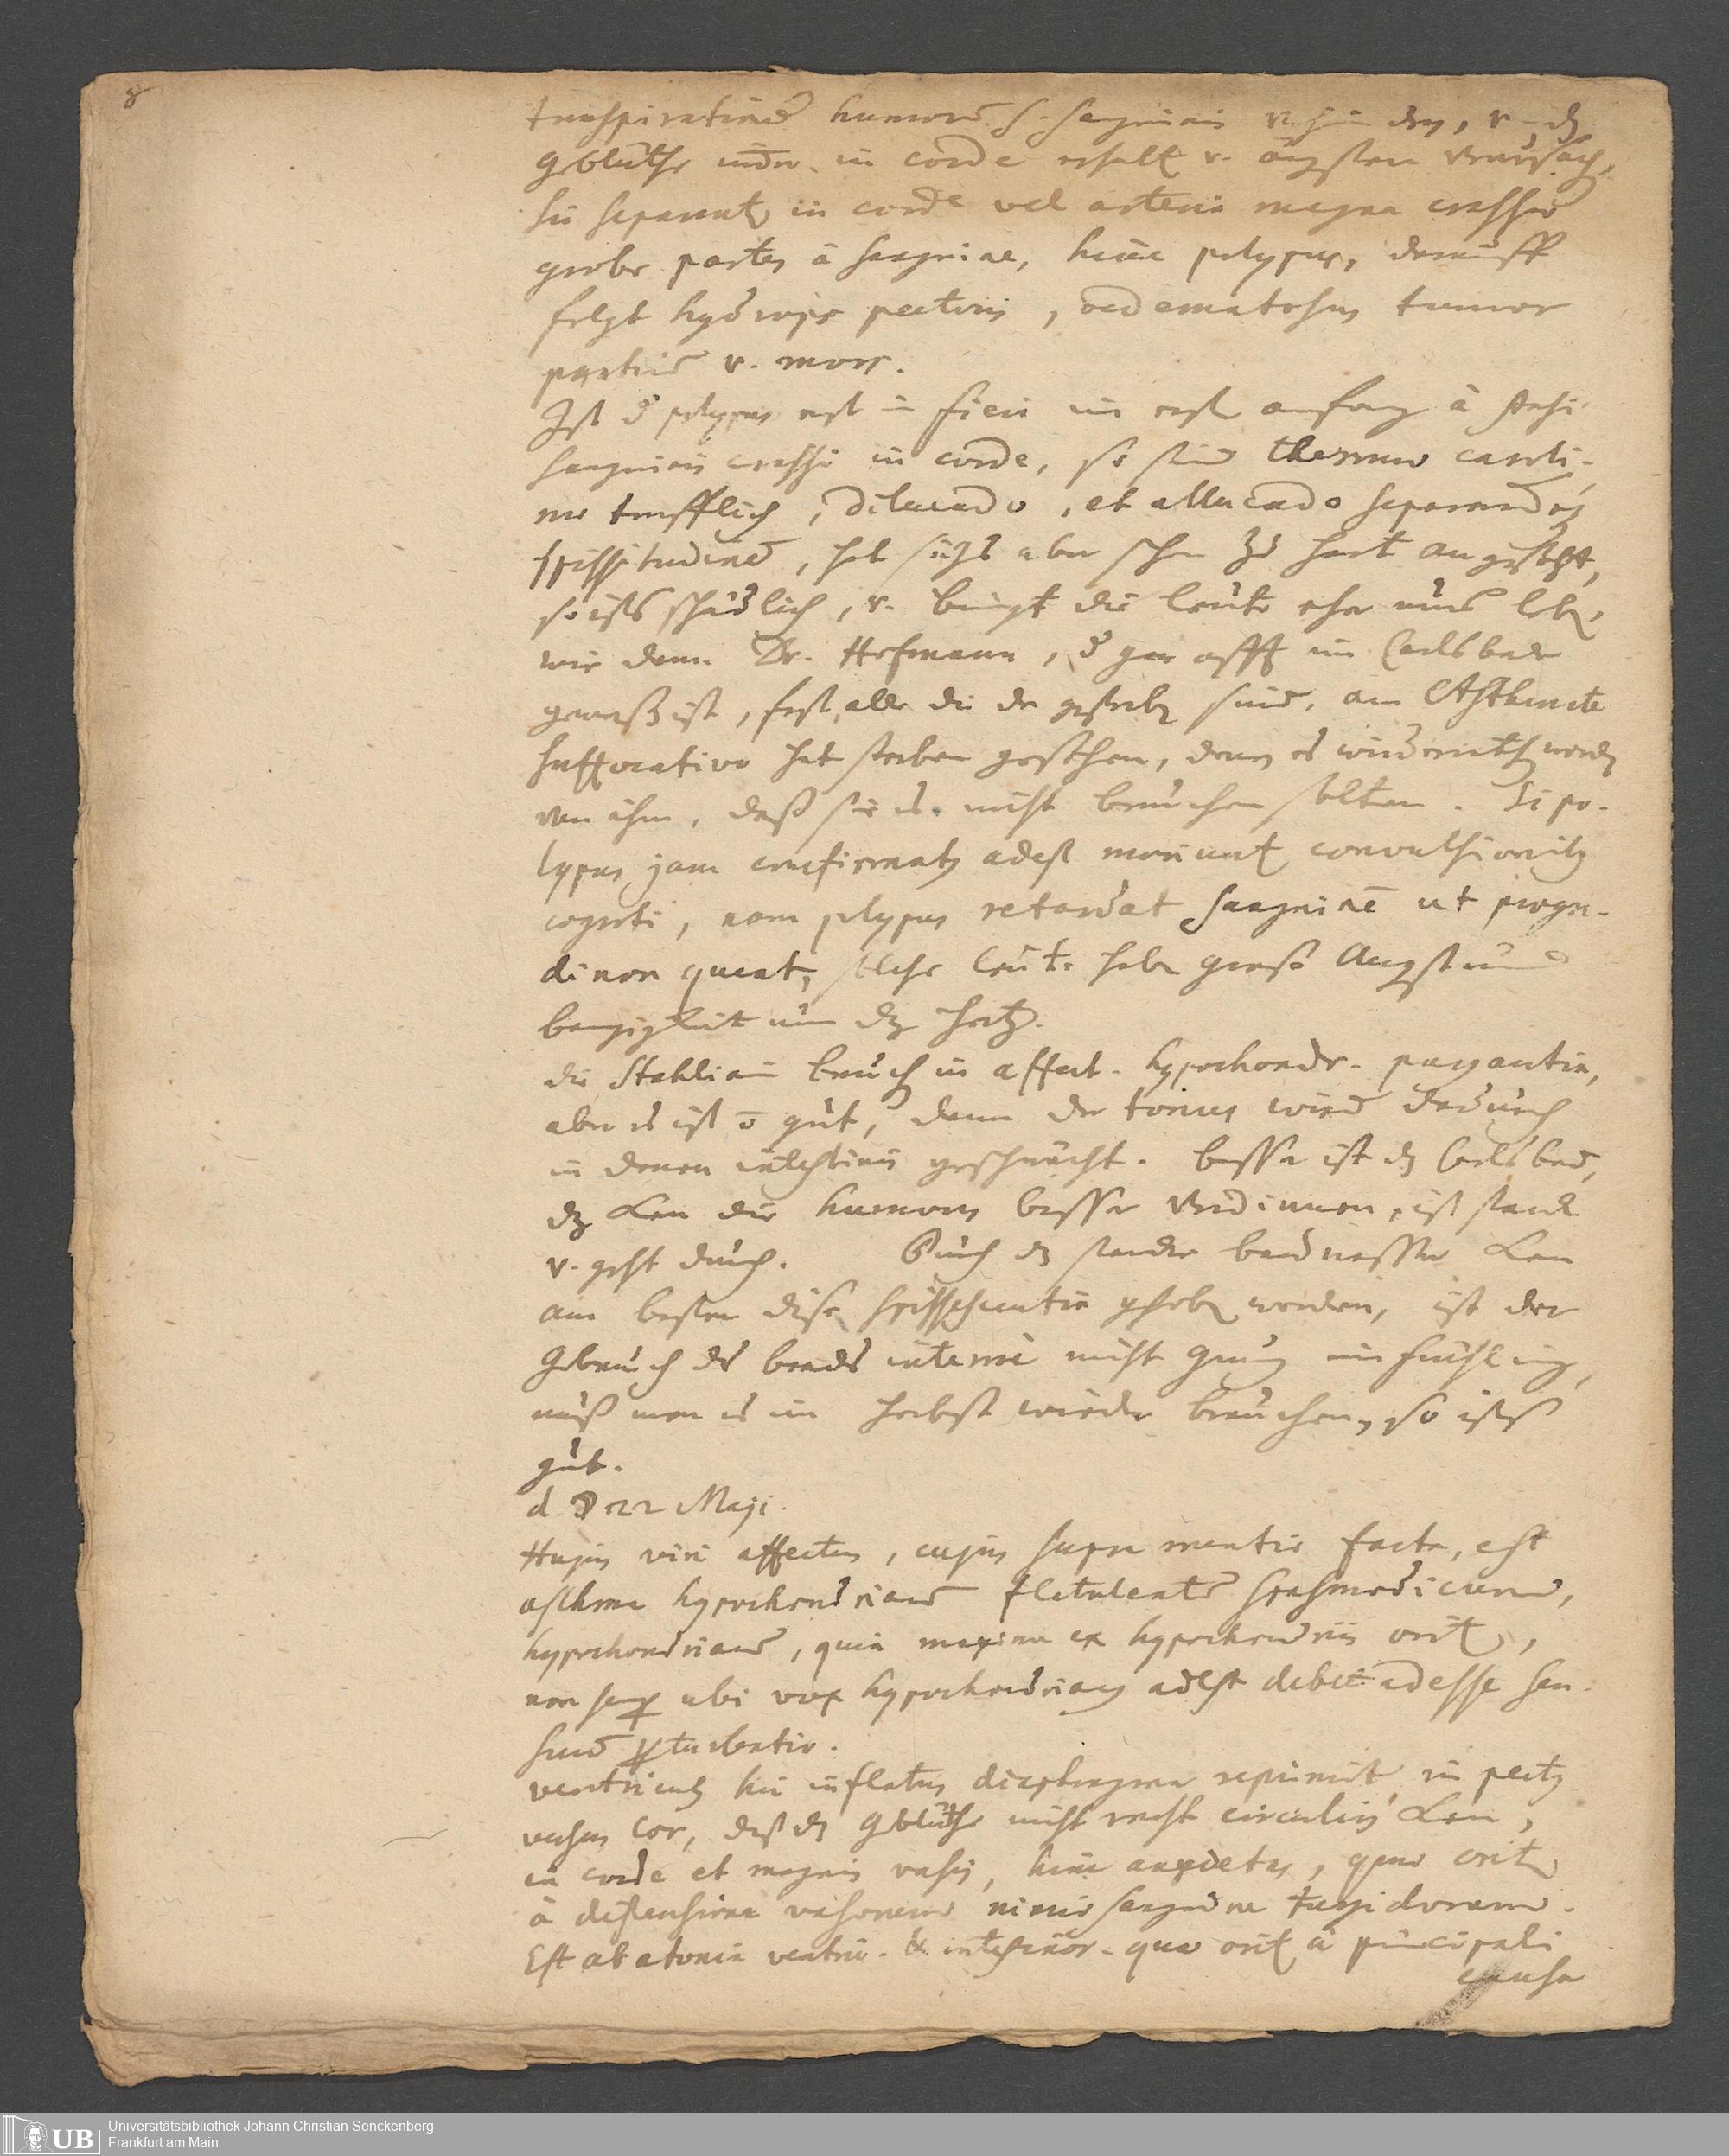 8
transpirationem humorum s. sanguinis verhindern, v. dz
geblüthe in corde erhalt v. ängsten verursach,
hii separantur in corde vel arteria magna crassiores
grobe partes à sanguine, hinc polypus, darauff
folgt hydrops pectoris, oedematosus tumor
partium v. mors.
Ist d polypus erst in fieri im erst anfang à stasi
sanguinis crassi in corde, so sind thermae caroli-
nae trefflich, diluendo, et abluendo separandoq
spissitudinem, hat sichs aber schon zu hart angesetzt,
so ists schädlich, v. bringt die leute eher ums leben,
wie dann Dr. Hofmann, d gar offt im Carlsbade
gewest ist, fast alle die da gestorben sind, am Asthmate
suffocativo hat sterben gesehen, denen es widerrathen worden
von ihm, daß sie es nicht brauchen solten. Si po-
lypus jam confirmatus adest moriuntur convulsionibus
cogniti, nam polypus retardat sanguinem ut progre-
di non queat, solche leute haben große Angst und
bangigkeit um dz hertz.
die Stahliani brauchen in affect. hypochondr. purgantia,
aber es ist ō gut, denn der tonus wird dadurch
in denen intestinis geschwächt. besser ist dz Carlsbad,
dz kan die humores besser verdünnen, ist starck
v. geht durch. Durch dz starcke baadwasser kan
am besten diese spissescentia gehoben werden, ist der
Gebrauch des baads interne nicht genug im frühling,
muß man es im herbst wieder brauchen, so ists
gut.
d. 22 Maji.
Hujus viri affectus, cujus supra mentio facta, est
asthma hypochondriacum flatulentum spasmodicum,
hypochondriacum, quia maxime ex hypochondriis oritur,
non semper ubi vox hypochondriacus adest debet adesse sen-
suum perturbatio.
ventriculus hic inflatus diaphragma reprimit in pectus
versus cor, daß dz Geblüthe nicht recht circuliren kan,
in corde et magnis vasis, hinc anxietas, quae oritur
à distensione vasorum nimis sanguine turgidorum.
Est ab atonia ventric. & intestinor. quae oritur à principali
causa
Universitätsbibliothek Johann Christian Senckenberg
Frankfurt am Main
UB